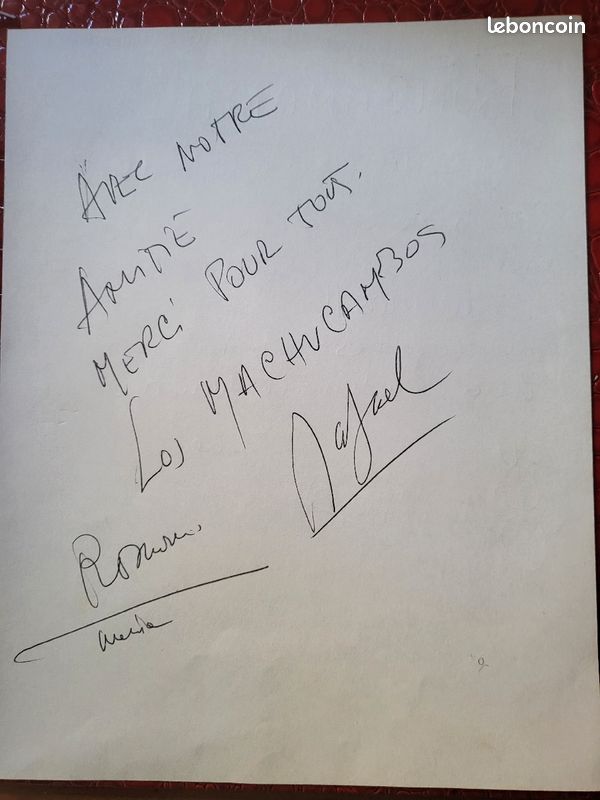 leboncoin
AVEC NOTRE
AMITIÉ
MERCI POUR TOUT.
LOS MACHUCAMBOS
Rafael
Romano
Maria